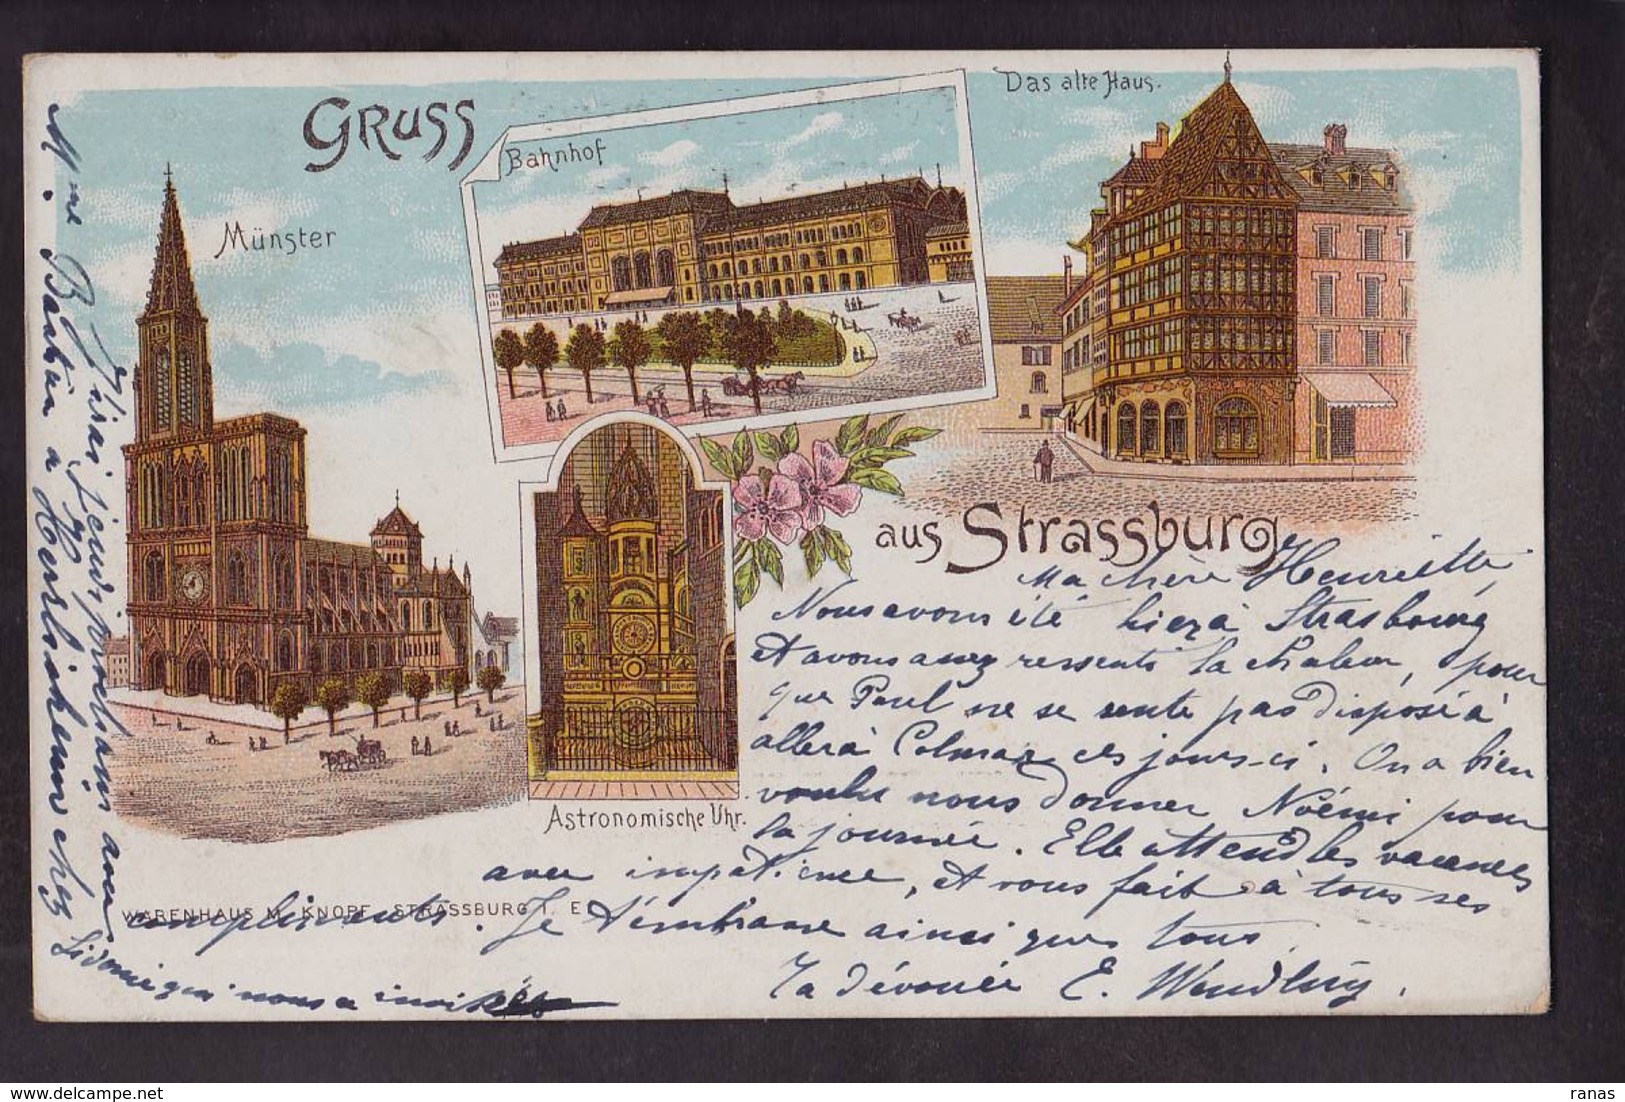 GRUSS
aus Strassburg
Münster
Bahnhof
Das alte Haus.
Astronomische Uhr.
WARENHAUS M. KNOPF, STRASSBURG I. E.
Ma chère Henriette,
Nous avons été hier à Strasbourg
et avons assez ressenti la chaleur, pour
que Paul ne se sente pas disposé à
aller à Colmar ces jours-ci. On a bien
voulu nous donner Noémi pour
la journée. Elle attend les vacances
avec impatience, et vous fait à tous ses
compliments. Je t'embrasse ainsi que tous.
Ta dévouée E. Wendling.
J'irai jeudi prochain avec
Mme Bastian à chez
Sidonie qui nous a
ranas